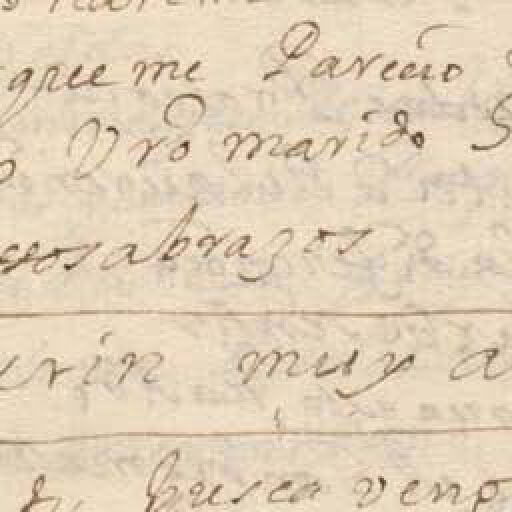 que me Pareçio
Vrõ marido
osabrazos
rin muy a
Busca veng